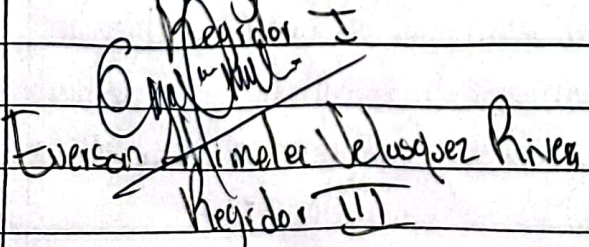 Regidor I
Everson Alimelec Velasquez Rivera
Regidor III